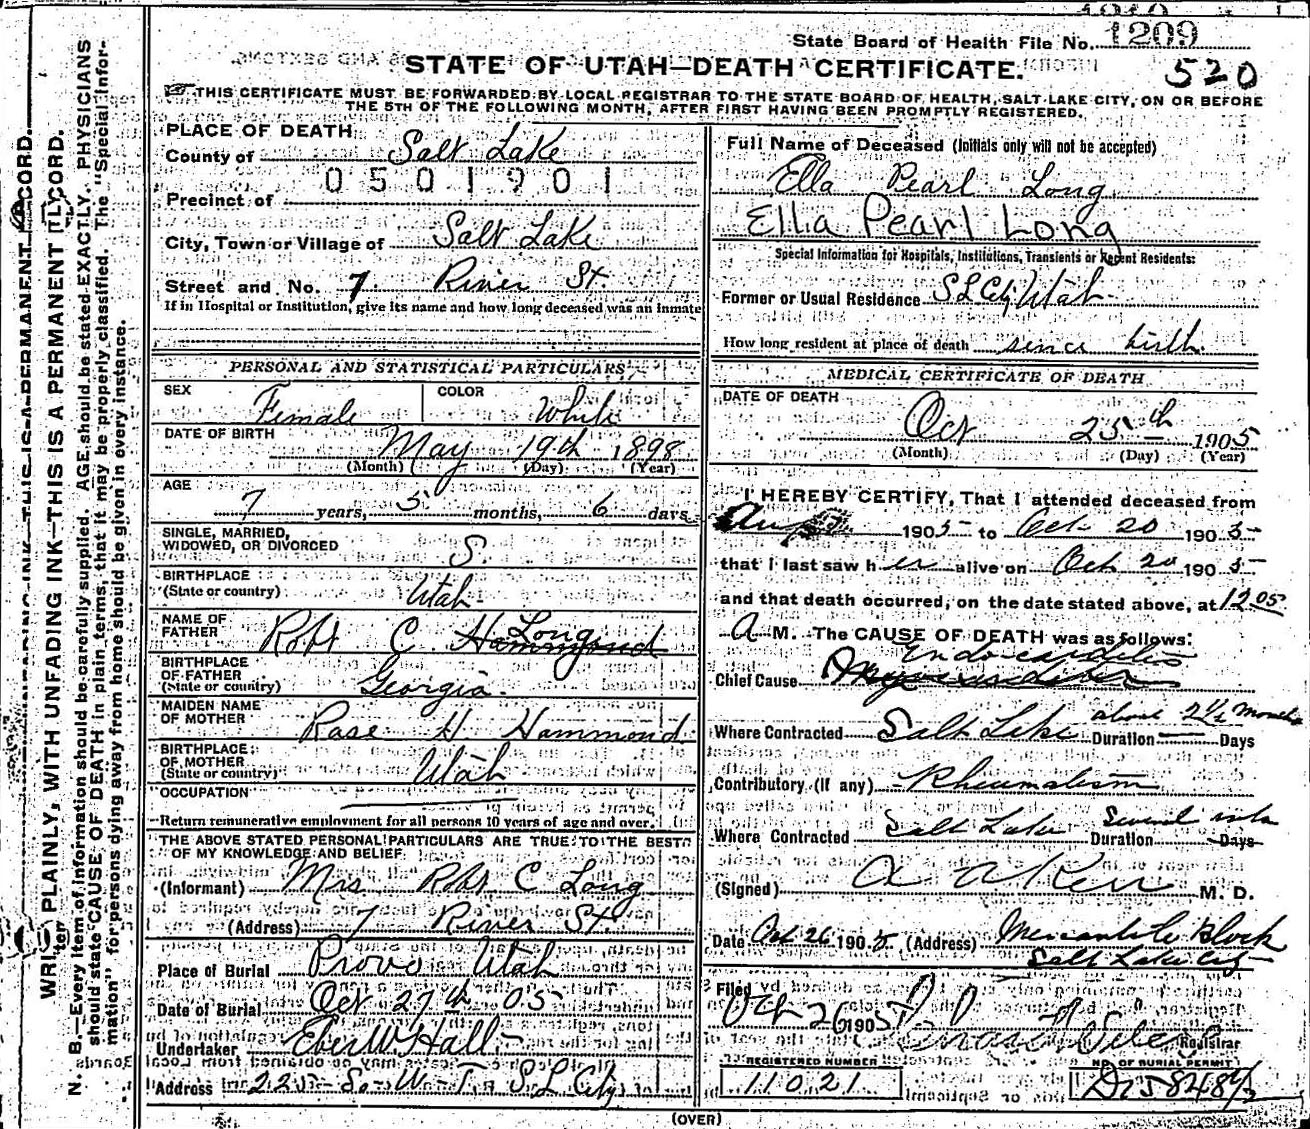 State Board of Health File No. 1209
520
STATE OF UTAH—DEATH CERTIFICATE.
THIS CERTIFICATE MUST BE FORWARDED BY LOCAL REGISTRAR TO THE STATE BOARD OF HEALTH, SALT LAKE CITY, ON OR BEFORE
THE 5TH OF THE FOLLOWING MONTH, AFTER FIRST HAVING BEEN PROMPTLY REGISTERED.
WRITE PLAINLY, WITH UNFADING INK—THIS IS A PERMANENT RECORD.
N. B.—Every item of information should be carefully supplied. AGE should be stated EXACTLY. PHYSICIANS
should state CAUSE OF DEATH in plain terms, that it may be properly classified. The "Special Infor-
mation" for persons dying away from home should be given in every instance.
PLACE OF DEATH
County of Salt Lake
0501901
Precinct of
City, Town or Village of Salt Lake
Street and No. 7 River St.
If in Hospital or Institution, give its name and how long deceased was an inmate
PERSONAL AND STATISTICAL PARTICULARS
SEX Female COLOR White
DATE OF BIRTH May 19th 1898
(Month) (Day) (Year)
AGE
7 years, 5 months, 6 days
SINGLE, MARRIED,
WIDOWED, OR DIVORCED S.
BIRTHPLACE
(State or country) Utah
NAME OF
FATHER Robt C Hammond Long
BIRTHPLACE
OF FATHER
(State or country) Georgia.
MAIDEN NAME
OF MOTHER Rose H Hammond
BIRTHPLACE
OF MOTHER
(State or country) Utah
OCCUPATION
Return remunerative employment for all persons 10 years of age and over.
THE ABOVE STATED PERSONAL PARTICULARS ARE TRUE TO THE BEST
OF MY KNOWLEDGE AND BELIEF
(Informant) Mrs Robt C Long
(Address) 7 River St.
Place of Burial Provo Utah
Date of Burial Oct 27th 05
Undertaker Eber W Hall
Address S L City
Full Name of Deceased (Initials only will not be accepted)
Ella Pearl Long
Ella Pearl Long
Special Information for Hospitals, Institutions, Transients or Recent Residents:
Former or Usual Residence S L City Utah
How long resident at place of death since birth
MEDICAL CERTIFICATE OF DEATH
DATE OF DEATH
Oct 25th 1905
(Month) (Day) (Year)
I HEREBY CERTIFY, That I attended deceased from
Aug 1905 to Oct 20 1905
that I last saw her alive on Oct 20 1905
and that death occurred, on the date stated above, at 12 05
A M. The CAUSE OF DEATH was as follows:
Endocarditis
Chief Cause
Where Contracted Salt Lake Duration about 2½ Months Days
Contributory (if any) Rheumatism
Where Contracted Salt Lake Duration Several Days
(Signed) A A Kerr M. D.
Date Oct 26 1905 (Address) Mercantile Block
Salt Lake City
Filed
Oct 26 1905 Registrar
REGISTERED NUMBER
11021
NO. OF BURIAL PERMIT
(OVER)